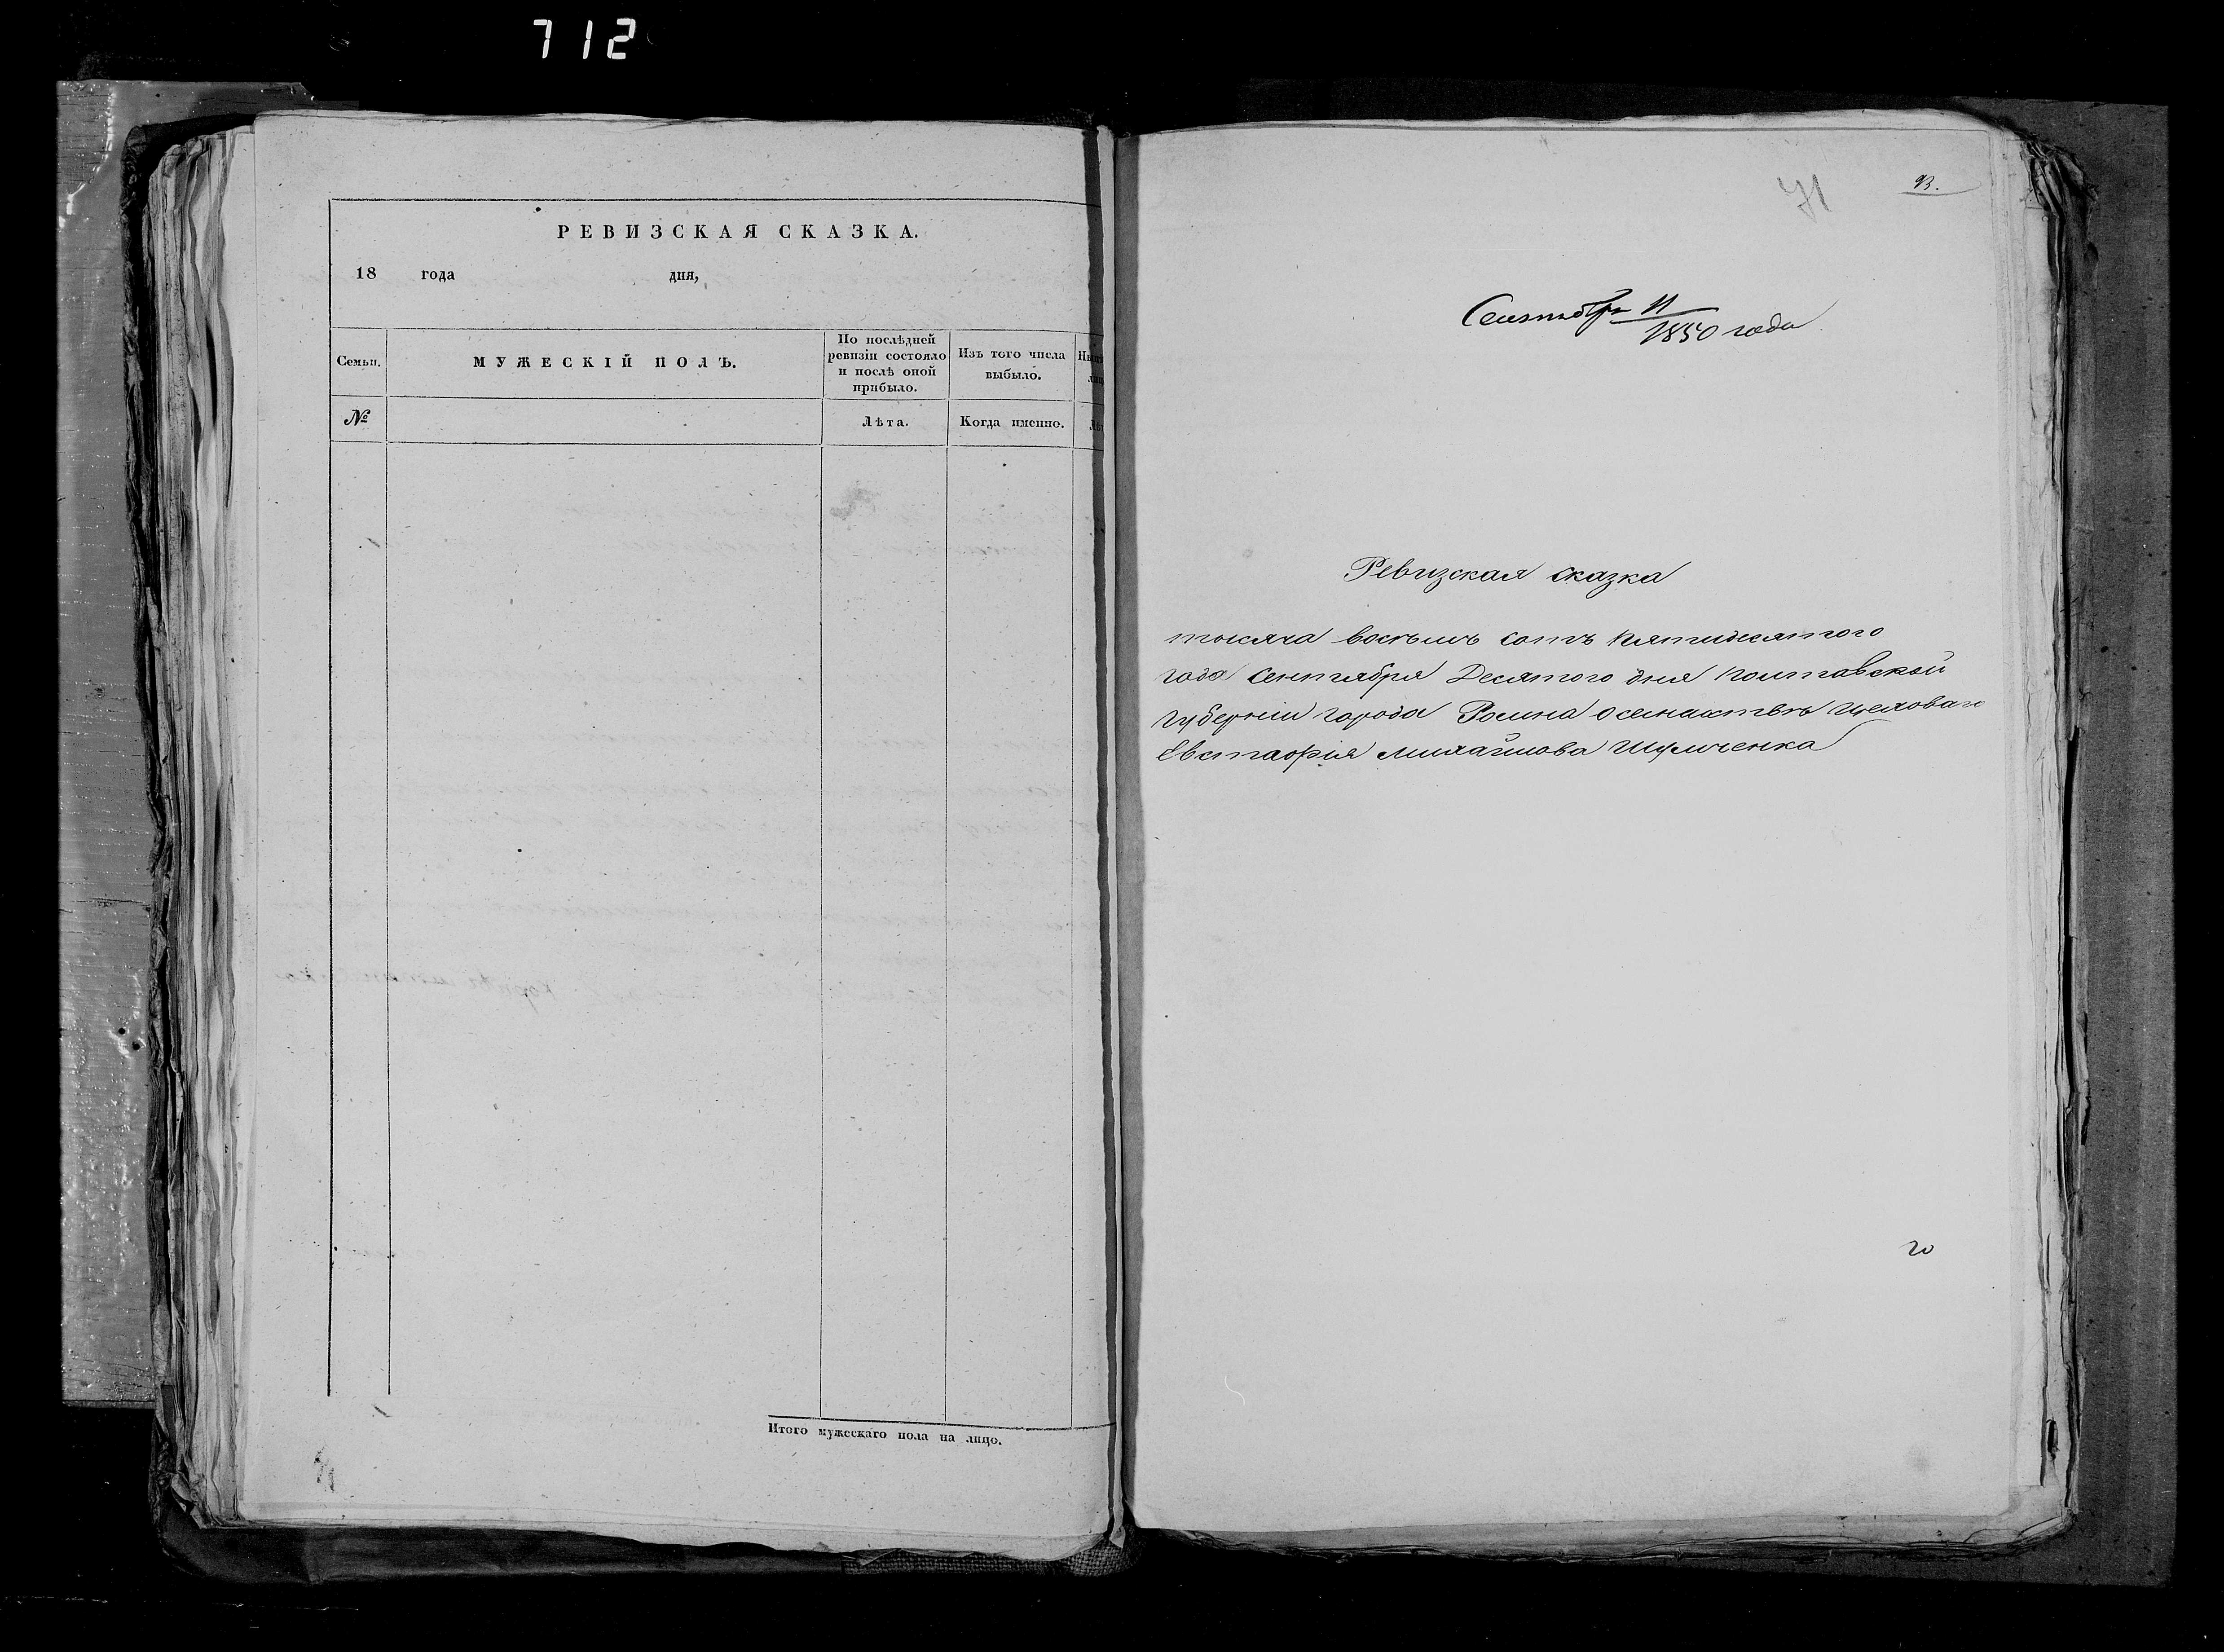 712
РЕВИЗСКАЯ СКАЗКА.
18 года дня,
Семьи.
МУЖЕСКІЙ ПОЛЪ.
По послѣдней
ревизіи состояло
и послѣ оной
прибыло.
Изъ того числа
выбыло.
№
Лѣта.
Когда именно.
Итого мужескаго пола на лицо.
71
93.
Сентября 11
1850 года
Ревизская сказка
тысяча восемь сотъ пятидесятого
года Сентября Десятого дня Полтавской
губерніи города Ромна о семействѣ
Евстафія Михайлова Шульченка
20